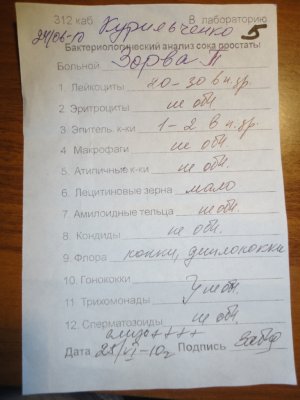 312 каб. В лабораторию
Курильченко 5
Бактериологический анализ сока простаты
Больной Зорва П
1. Лейкоциты 20-30 в п.зр.
2. Эритроциты не обн.
3. Эпитель. к-ки 1-2 в п.зр.
4. Макрофаги не обн.
5. Атипичные к-ки не обн.
6. Лецитиновые зерна мало
7. Амилоидные тельца не обн.
8. Кондиды не обн.
9. Флора кокки, диплококки
10. Гонококки
11. Трихомонады не обн.
12. Сперматозоиды не обн.
++++
Дата Подпись